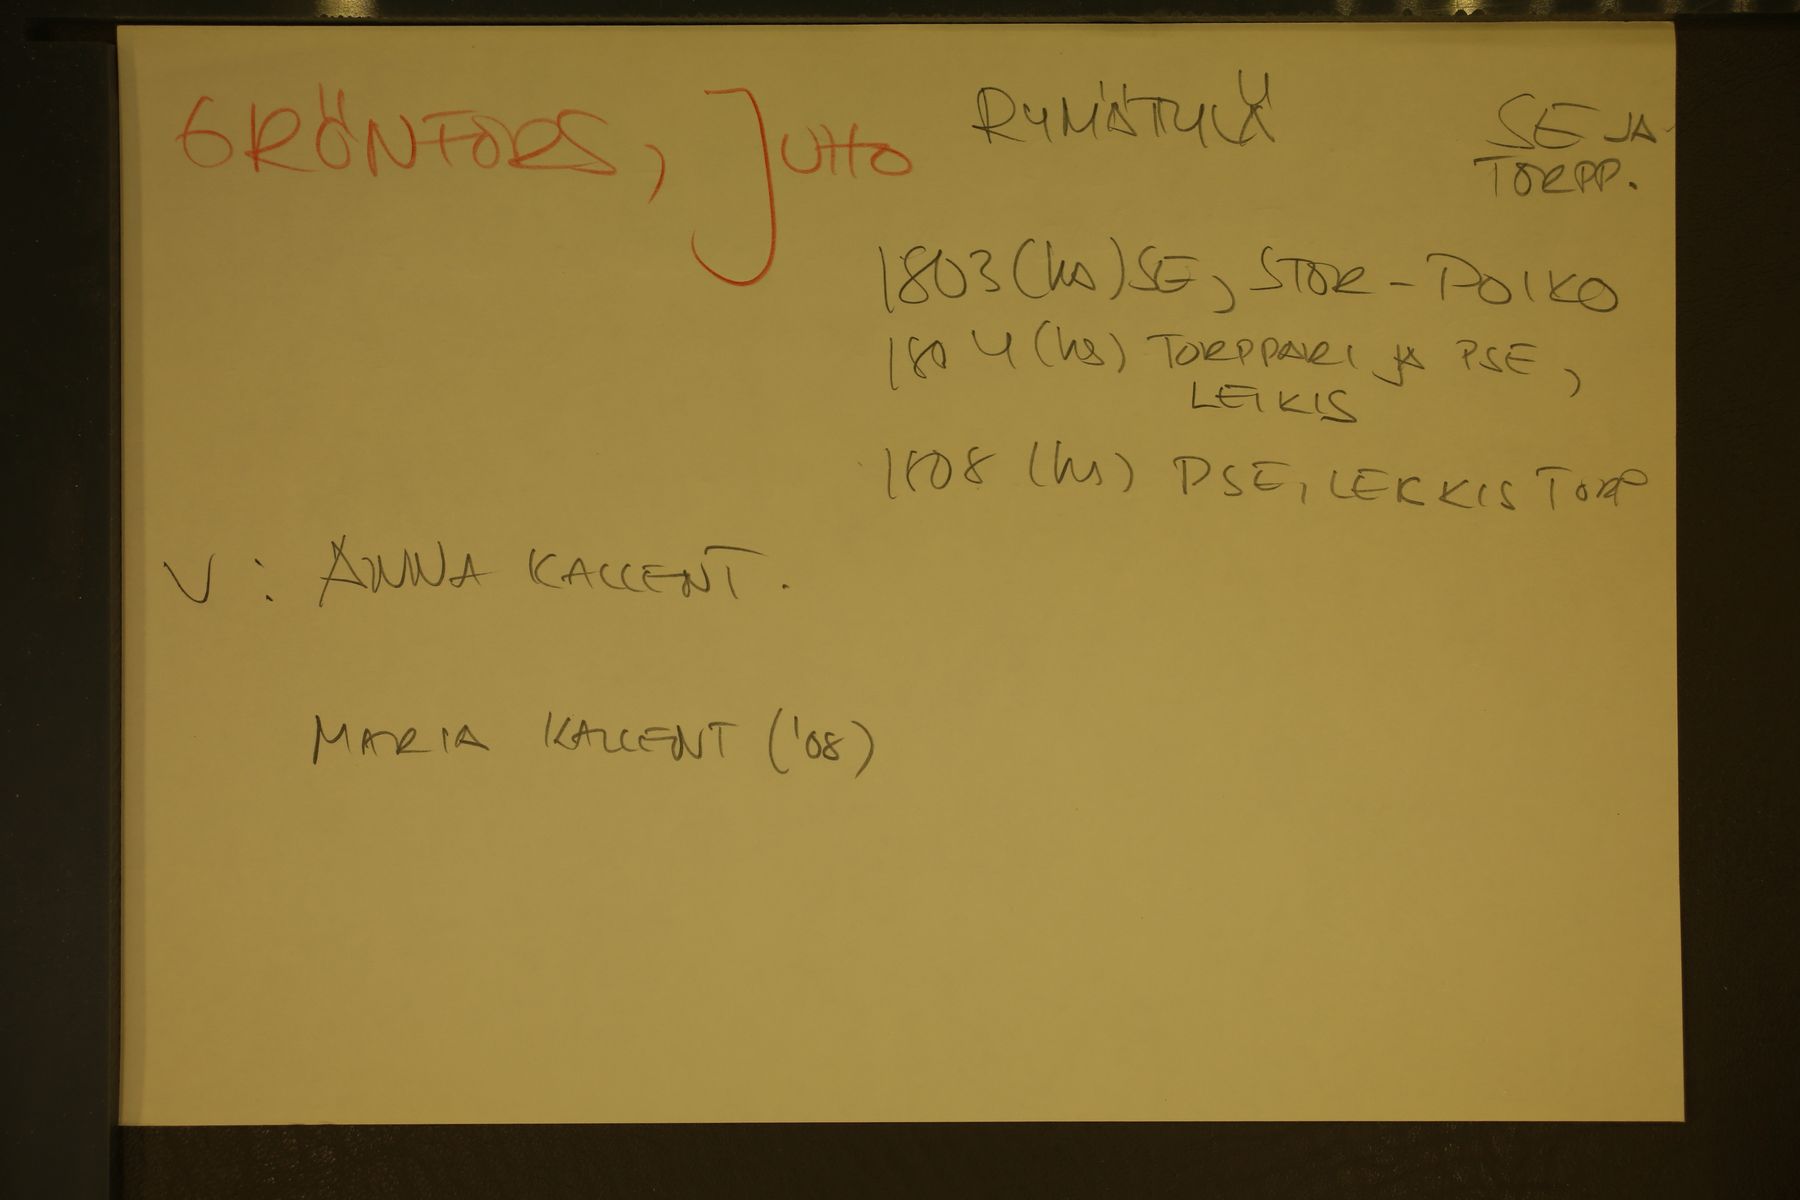 GRÖNFORS, JUHO RYMÄTTYLÄ SE JA
TORPP.
1803 (hs) SE, STOR-POIKO
1804 (hs) TORPPARI JA PSE,
LEIKIS
1808 (hs) PSE, LEKKIS TORP
V: ANNA KALLENT.
MARIA KALLENT ('08)